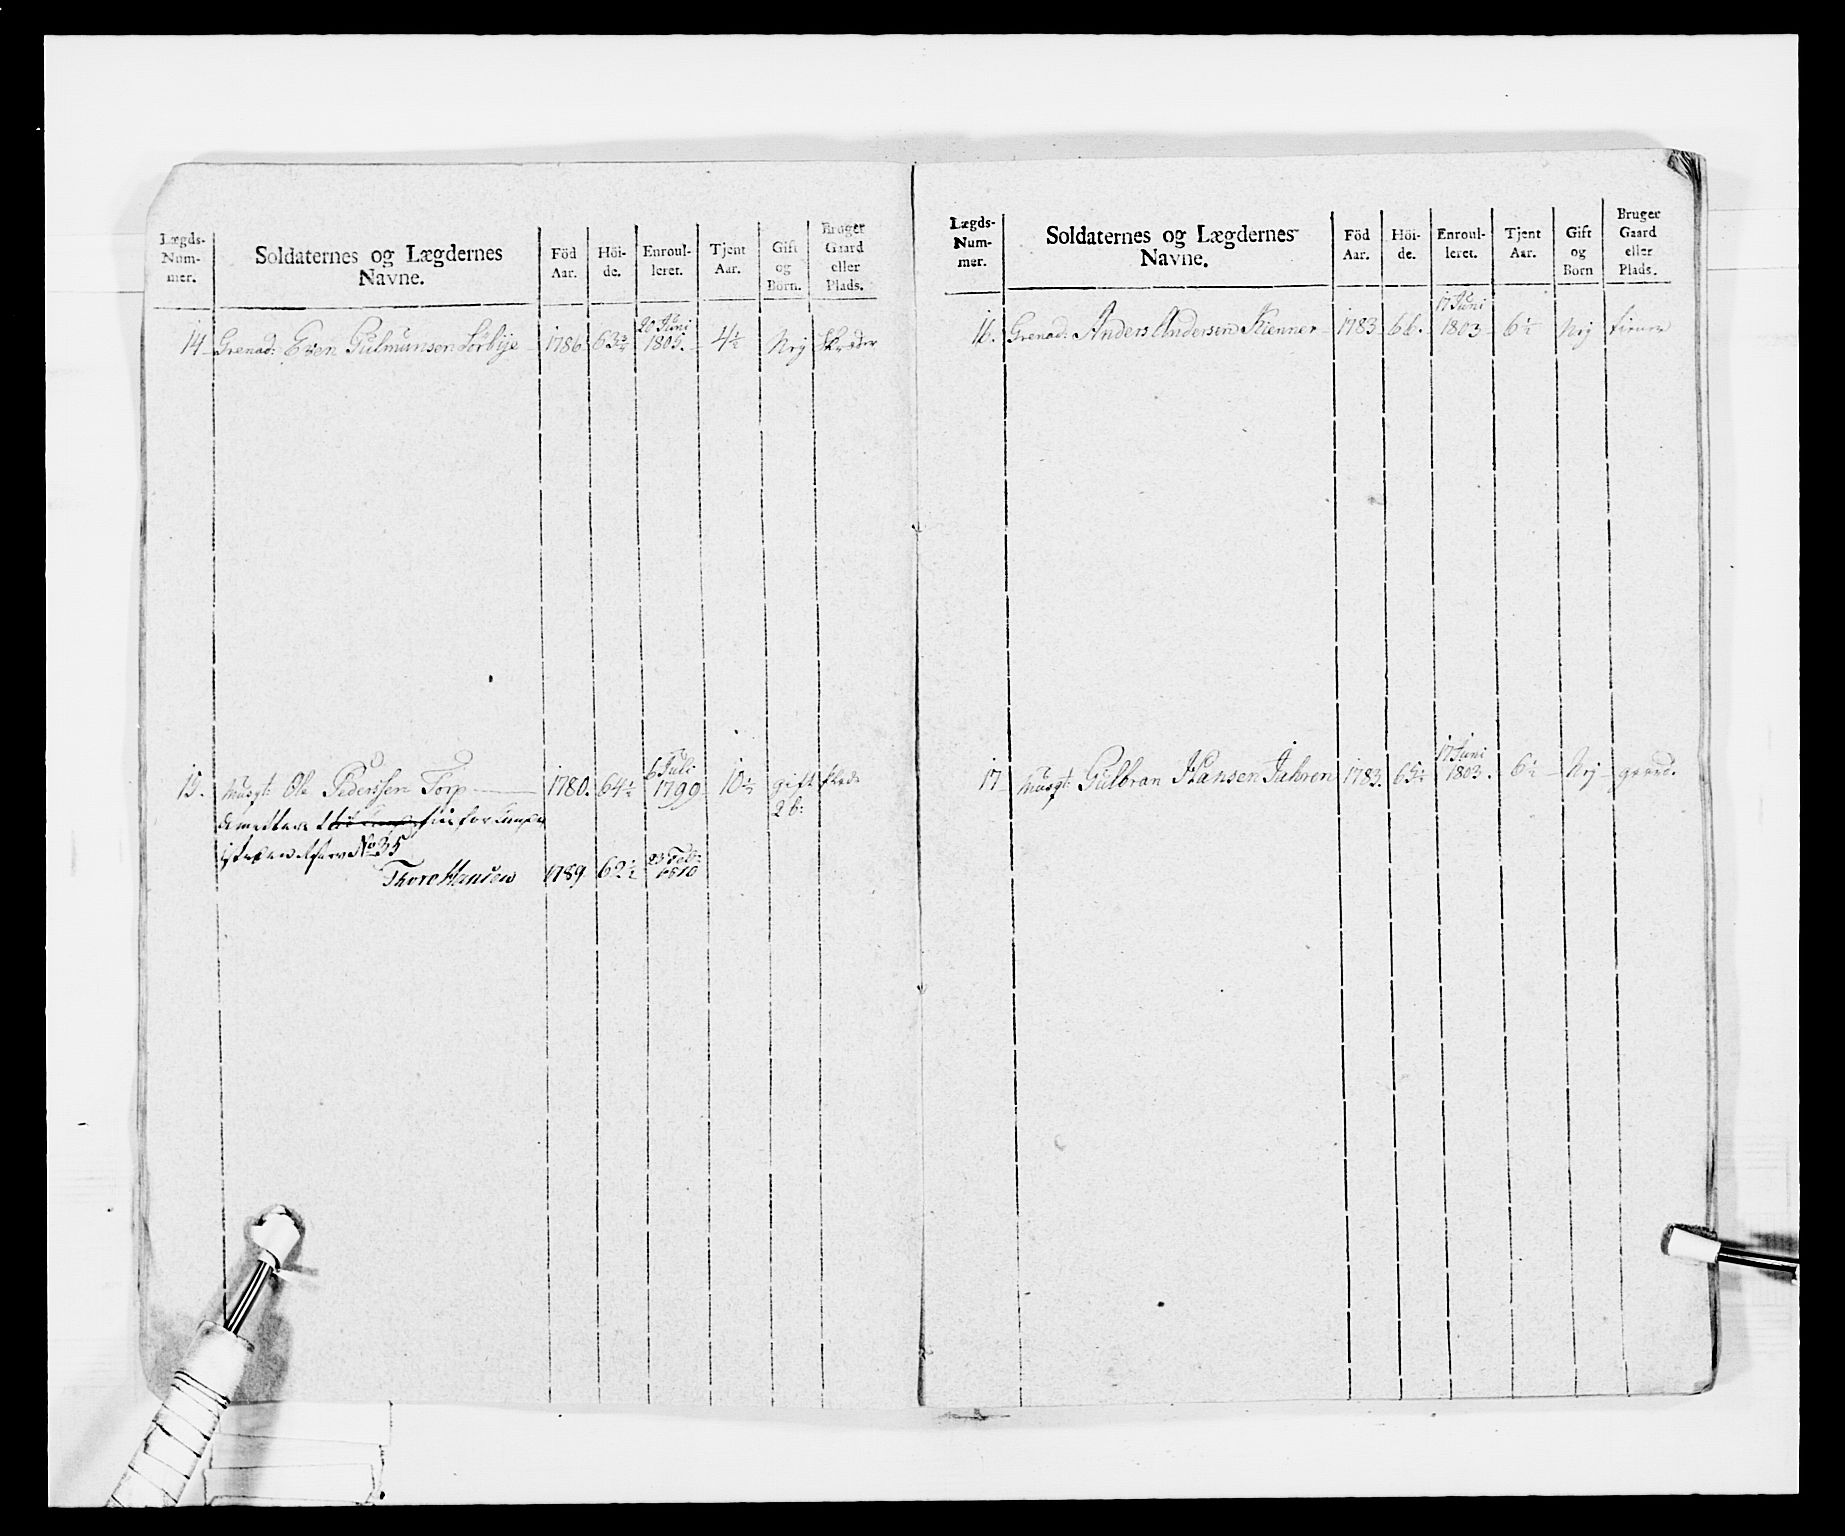 Lægds-
Num-
mer.
Soldaternes og Lægdernes
Navne.
Föd
Aar.
Höi-
de.
Enroul-
leret.
Tjent
Aar.
Gift
og
Börn.
Bruger
Gaard
eller
Plads.
14 Grenad: Even Gulmunsen Sörbye 1786 63¾ 20 Juni 1805. 4½ Nej
15. Musqt: Ole Pedersen Torp 1780. 64½ 6 Juli 1799 10½ gift Plads
2 b:
No 35
Thore Hansen 1789 62½ 23 Feb: 1810
Lægds-
Num-
mer.
Soldaternes og Lægdernes
Navne.
Föd
Aar.
Höi-
de.
Enroul-
leret.
Tjent
Aar.
Gift
og
Börn
Bruger
Gaard
eller
Plads.
16. Grenad: Anders Andersen Kienner 1783 66. 17 Juni 1803 6½ Nej
17 Musqt: Gulbran Hansen Jahren 1783. 65½ 17 Juni 1803. 6½ Nej gaard.